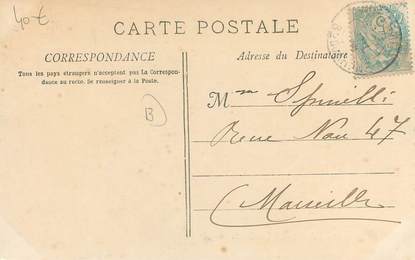 40€
CARTE POSTALE
CORRESPONDANCE
Tous les pays étrangers n'acceptent pas La Correspon-
dance au recto. Se renseigner à la Poste.
B
Adresse du Destinataire
Mme Spinelli
Rue Nau 47
Marseille